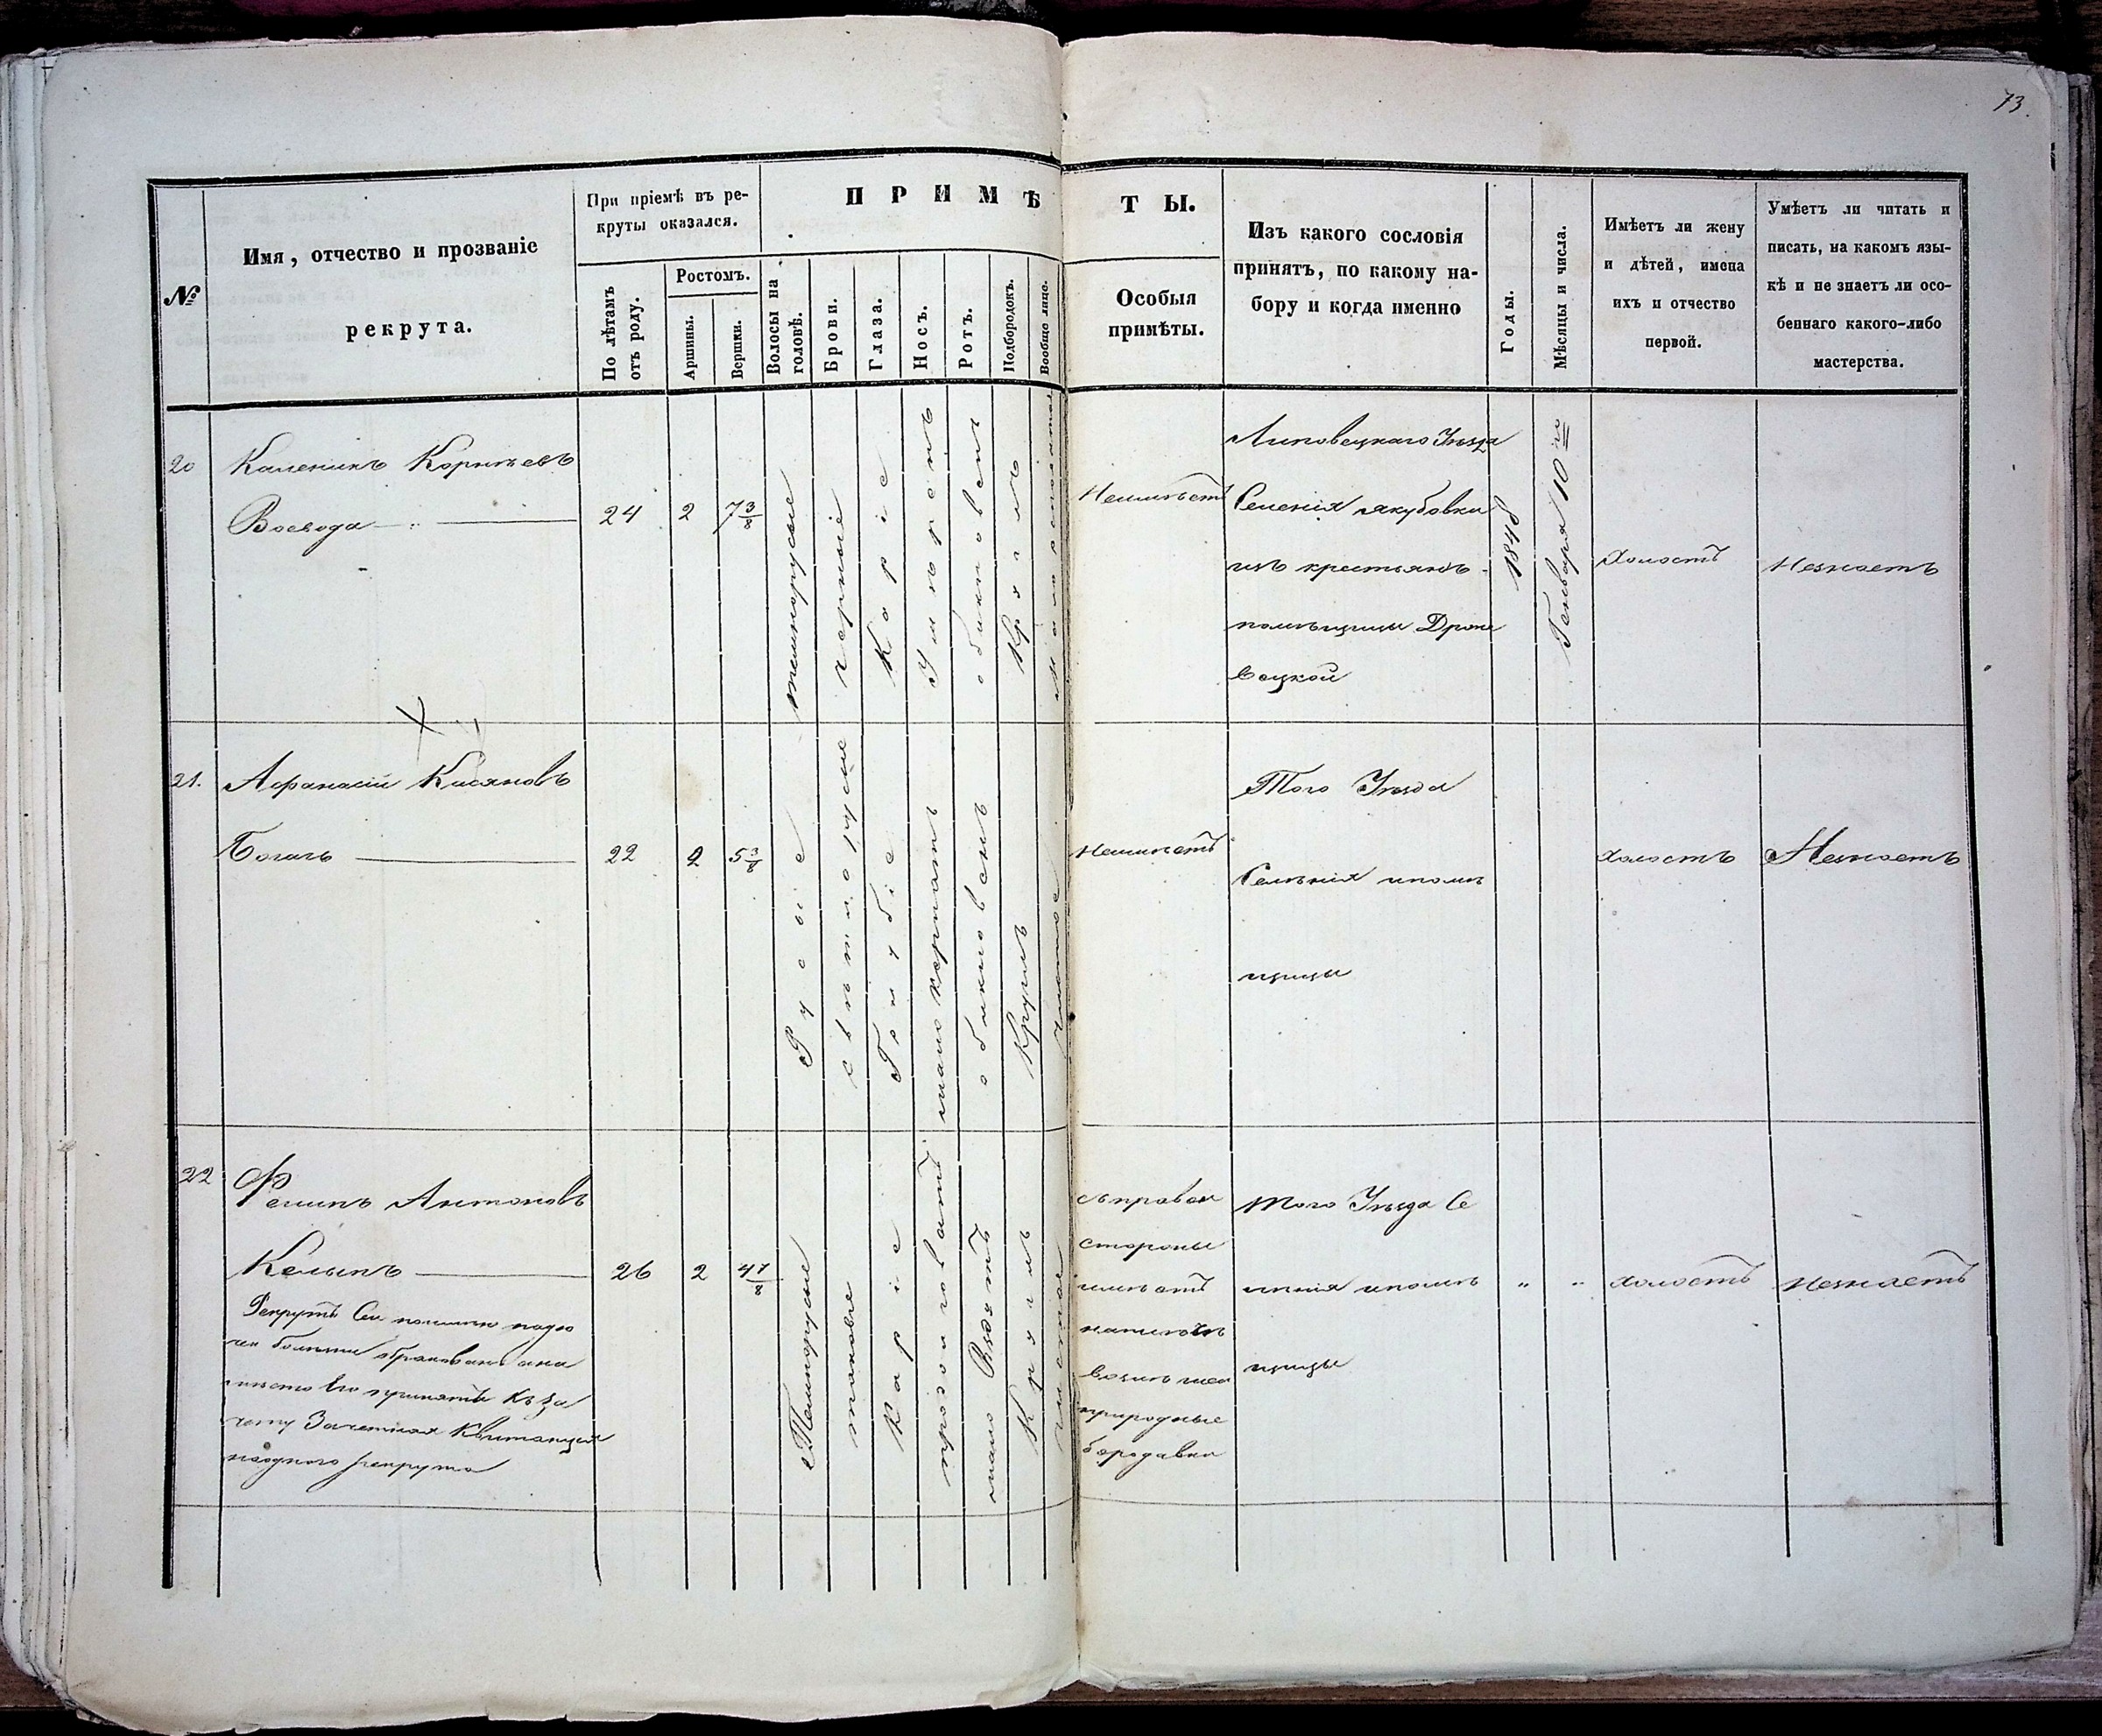 73.
№
Имя, отчество и прозваніе
рекрута.
При пріемѣ въ ре-
круты оказался.
По лѣтамъ
отъ роду.
Ростомъ.
Аршины.
Вершки.
ПРИМѢ
ТЫ.
Волосы на
головѣ.
Брови.
Глаза.
Носъ.
Ротъ.
Подбородокъ.
Вообще лице.
Особыя
примѣты.
Изъ какого сословія
принятъ, по какому на-
бору и когда именно
Годы.
Мѣсяцы и числа.
Имѣетъ ли жену
и дѣтей, имена
ихъ и отчество
первой.
Умѣетъ ли читать и
писать, на какомъ язы-
кѣ и не знаетъ ли осо-
беннаго какого-либо
мастерства.
20
Каленикъ Корнѣевъ
Воевода
24
2
7 3/8
темнорусые
черные
Каріе
Умѣренъ
обикновенъ
Круглъ
Неимѣетъ
Липовецкаго Уѣзда
Селенія якубовки
изъ крестьянъ
помѣщицы Дроне
вецкой
1848
Генваря 10го
Холостъ
Незнаетъ
21.
Афанасій Касяновъ
Богачъ
22
2
5 3/8
Русые
свѣтлорусые
Голубіе
мало керпатъ
обикновенъ
Круглъ
чистое
Неимѣетъ
Того Уѣзда
Селѣнія ипомѣ
щицы
Холостъ
Незнаетъ
22
Филипъ Антоновъ
Келыпъ
Рекрутъ Сей
Зачетная Квитанція
рекрута
26
2
4 7/8
Темнорусые
таковые
Каріе
продолговатъ
мало Вздятъ
Круглъ
чистое
съ правой
стороны
имѣетъ
природные
бородавки
того Уѣзда Се
лѣнія ипомѣ
щицы
"
"
холостъ
Незнаетъ